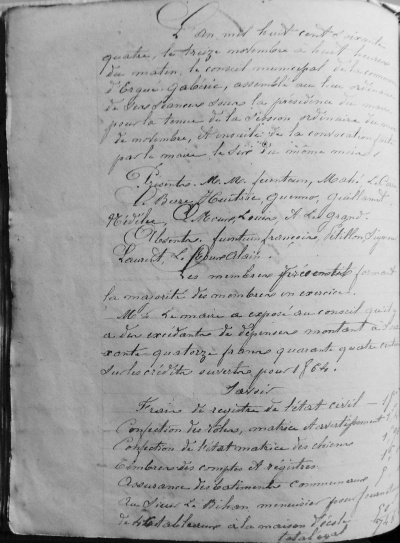 L'an mil huit cent soixante
quatre, le treize novembre à huit heures
du matin, le conseil municipal de la com
d'Ergué-Gabéric, assemblé au lieu ordinaire
de ses séances sous la présidence du maire
pour la tenue de la session ordinaire du
de novembre, et ensuite de la convocation faite
par le maire le six du même mois.
Présents M.M. feunteun, Mahé Le
Le Berre, Huitric, Quenno,
Nédélec, Le Meur Louis, et Le Grand.
Absents. feunteun françois, Pétillon
Laurent, Le Meur Alain.
Les membres présents formant
la majorité des membres en exercice.
Mr Le maire a exposé au conseil qu'il y
a des excédants de dépenses montant à soix
xante quatorze francs quarante quatre centimes
sur les crédits ouverts pour 1864.
Savoir
Frais de registre de l'état civil
Confection des rôles, matrice et avertissements
Confection de l'état matrice des chiens
Timbres des comptes et registres
Assurance des bâtiments communaux
Au Sieur Le Bihan menuisier pour
de tableaux à la maison d'école
total égal